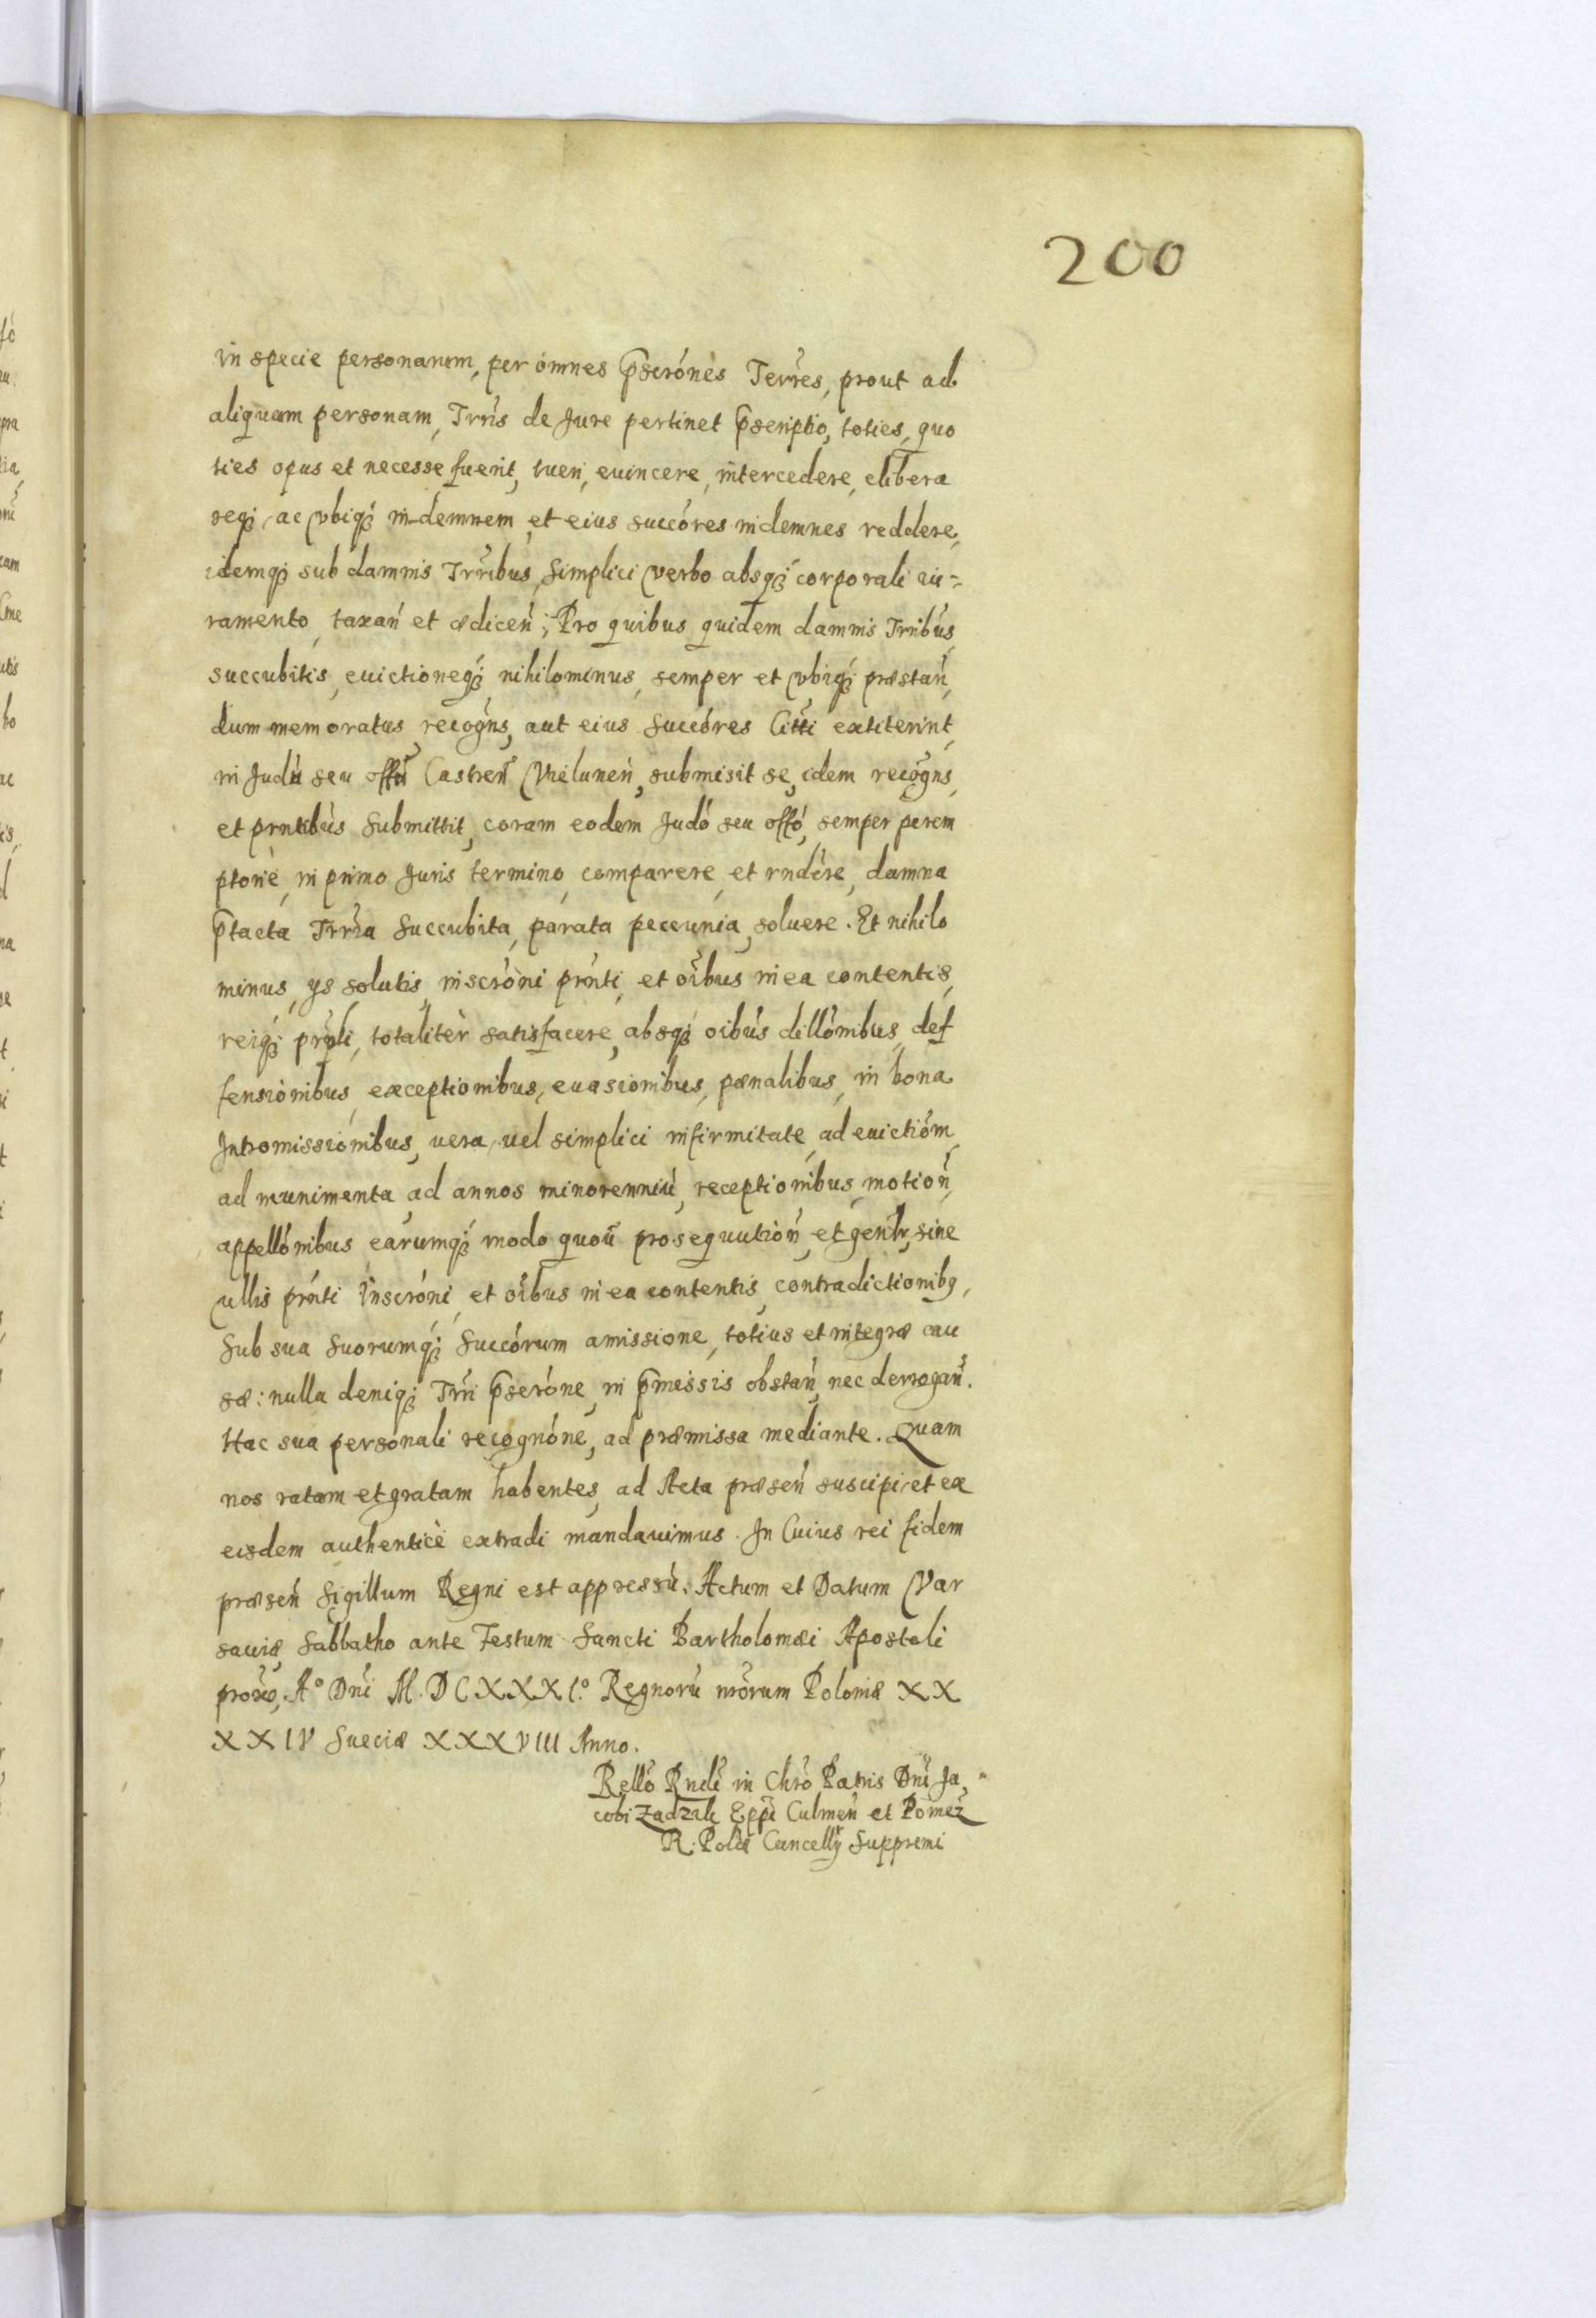 200
in specie personarum, per omnes p̄scrónes Terr̃es, prout ad
aliquam personam, Trrĩs de Jure pertinet p̄scriptio, toties, quo
ties opus et necesse fuerit, tueri, euincere, intercedere, elibera
reqȝ, ac vbiqȝ indemnem, et eius succóres indemnes reddere,
idemqȝ sub damnis Trrĩbus, simplici verbo absqȝ corporali iu=
ramento, taxań et ædiceń; Pro quibus quidem damnis Trrĩbus,
succubitis, euictioneqȝ nihilominus, semper et vbiqȝ præstań,
dum memoratus, recogñs, aut eius succóres Citti extiterint,
in Judú seu offú Castreń Vieluneń, submisit se, idem recogñs,
et prntibús submittit, coram eodem Judó seu offó, semper perem
ptoriè, in primo Juris termino, comparere, et rndére, damna
p̄tacta Trrĩa succubita, parata peccunia, soluere. Et nihilo
minus, ys solutis, inscróni prńti, et oĩbus in ea contentis,
reiqȝ prĩpli, totalitèr satisfacere, absqȝ oibús dillónibus, def
fensiónibus, exceptionibus, euasionibus, pœnalibus, in bona
Intromissiónibus, vera, vel simplici infirmitate, ad euictióm,
ad munimenta, ad annos minorenniú, receptionibus, motioń,
appellónibus earumqȝ modo quoũ prosequutioń, et genlr̃, sine
ullis prńti Inscróni, et oĩbus in ea contentis, contradictionibȝ,
sub sua suorumqȝ succórum amissione, totius et integræ cau
sæ: nulla deniqȝ Trrĩ p̄scróne, in p̄messis obstań, nec derrogań.
Hac sua personali recognóne, ad præmissa mediante. Quam
nos ratam et gratam habentes, ad Acta præseń suscipi, et ex
eisdem authenticè extradi mandauimus. In Cuius rei fidem
præseń Sigillum Regni est appressú. Actum et Datum Var
sauiæ, Sabbatho ante Festum Sancti Bartholomæi Apostoli
proxo, A° Dnĩ M. D C X X X I.° Regnorú nrórum Poloniæ X X
X X I V Sueciæ X X X V I I I Anno.
Relló Rndĩ in Chró Patris Dnĩ Ja,
cobi Zadzik Eppĩ Culmeń et Pomez̃
R. Polæ Cancellỹ Suppremi